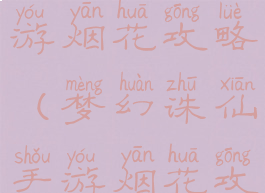 yóu yān huā gōng lüè
游烟花攻略
mèng huàn zhū xiān
（梦幻诛仙
shǒu yóu yān huā gōng
手游烟花攻